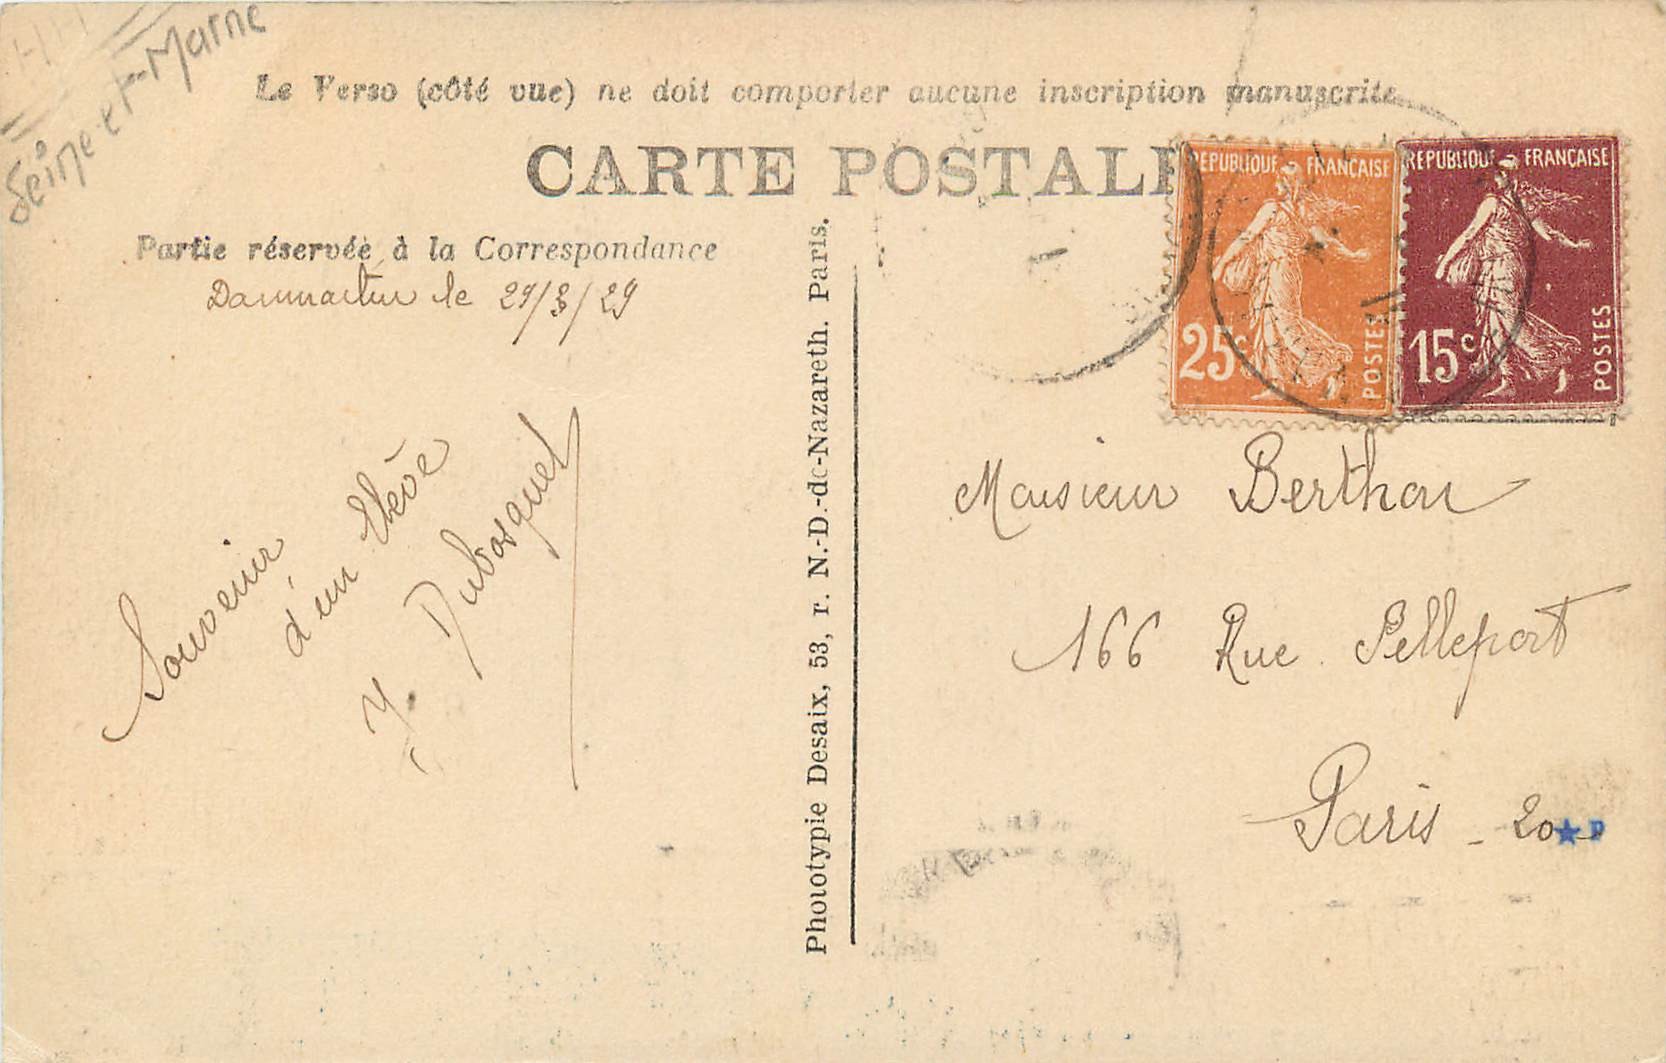 Seine-et-Marne
Le Verso (côté vue) ne doit comporter aucune inscription manuscrite
CARTE POSTALE
Partie réservée à la Correspondance
Dammartin le 29/8/29
Souvenir
d'un Elève
Y. Dubosquet
Phototypie Desaix, 53, r. N.-D.-de-Nazareth. Paris.
REPUBLIQUE FRANÇAISE
25c
POSTES
REPUBLIQUE FRANÇAISE
15c
POSTES
Monsieur Berthou
166 Rue Pelleport
Paris - 20